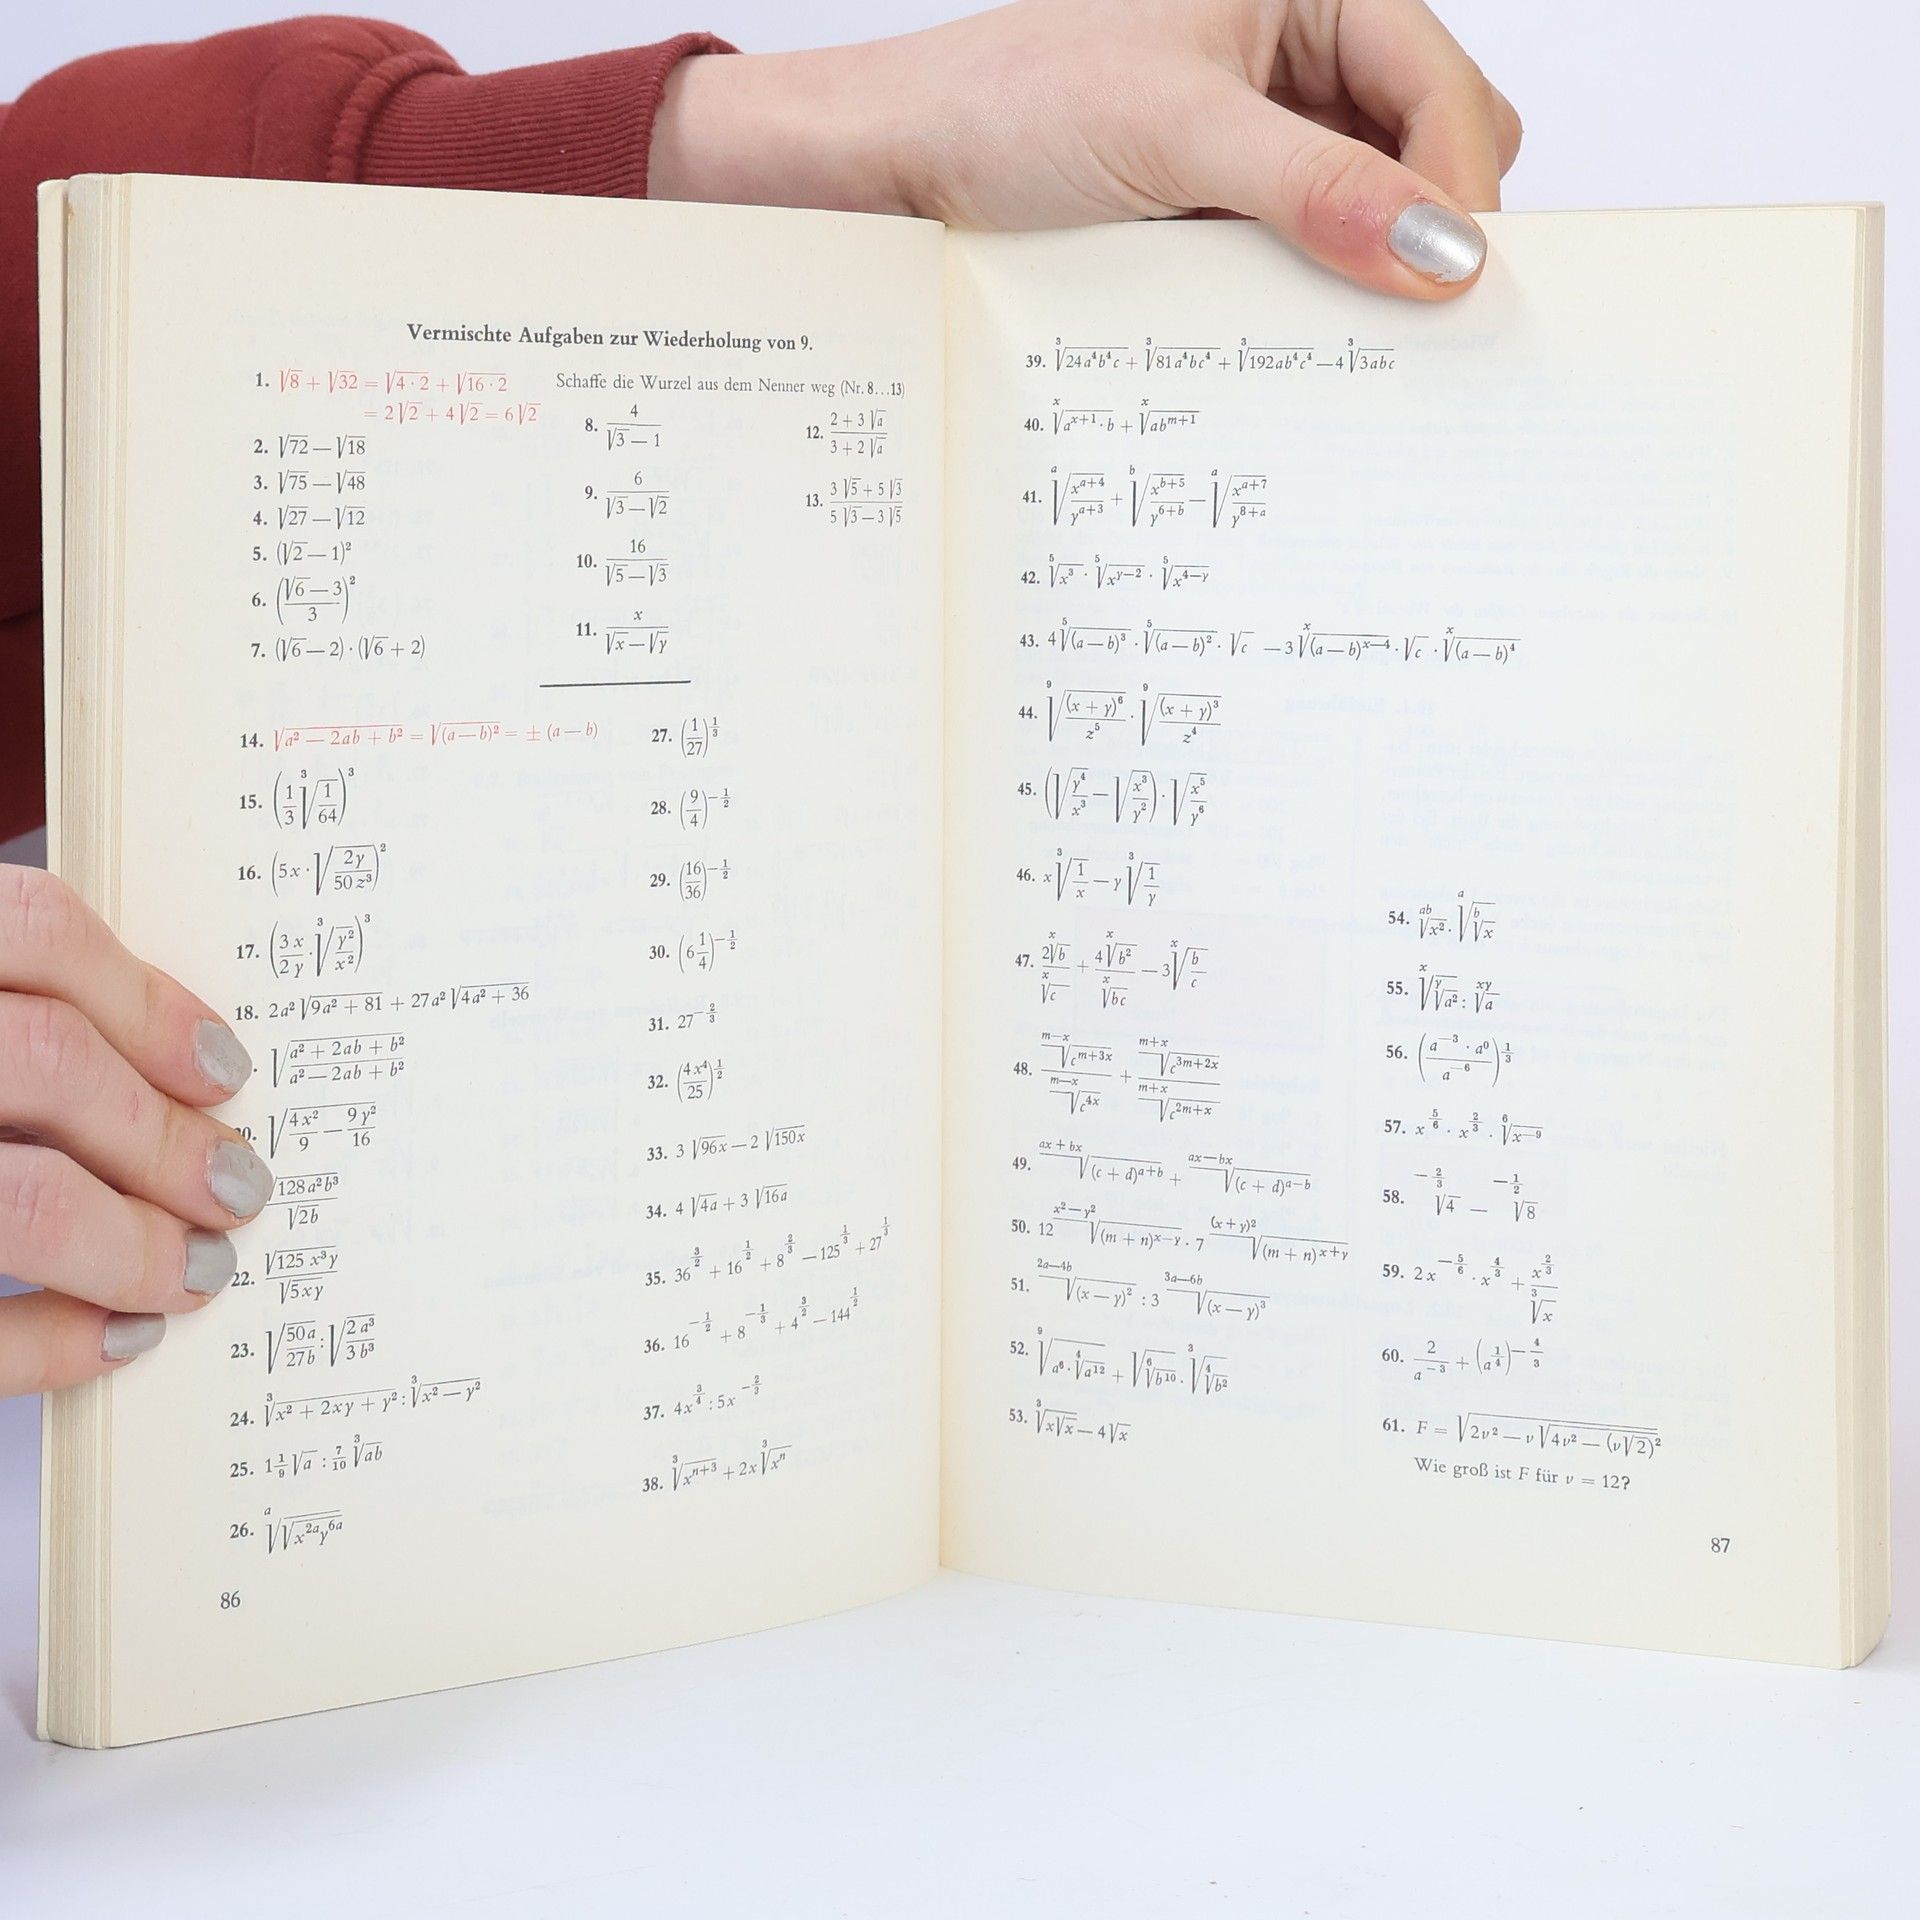 Vermischte Aufgaben zur Wiederholung von 9.
1. √8 + √32 = √(4 · 2) + √(16 · 2)
= 2√2 + 4√2 = 6√2
2. √72 — √18
3. √75 — √48
4. √27 — √12
5. (√2 — 1)²
6. ((√6 — 3)/3)²
7. (√6 — 2) · (√6 + 2)
Schaffe die Wurzel aus dem Nenner weg (Nr. 8...13)
8. 4/(√3 — 1)
9. 6/(√3 — √2)
10. 16/(√5 — √3)
11. x/(√x — √y)
12. (2 + 3√a)/(3 + 2√a)
13. (3√5 + 5√3)/(5√3 — 3√5)
14. √(a² — 2ab + b²) = √((a — b)²) = ± (a — b)
15. (1/3 ∛(1/64))³
16. (5x · √(2y/(50z³)))²
17. (3x/(2y) · ∛(y²/x²))³
18. 2a² √(9a² + 81) + 27a² √(4a² + 36)
. √((a² + 2ab + b²)/(a² — 2ab + b²))
0. √(4x²/9 — 9y²/16)
√(128a²b³)/√(2b)
22. √(125x³y)/√(5xy)
23. √(50a/(27b)) : √(2a³/(3b³))
24. ∛(x² + 2xy + y²) : ∛(x² — y²)
25. 1 1/9 √a : 7/10 ∛(ab)
26. ᵃ√(√(x²ᵃy⁶ᵃ))
27. (1/27)^(1/3)
28. (9/4)^(—1/2)
29. (16/36)^(—1/2)
30. (6 1/4)^(—1/2)
31. 27^(—2/3)
32. (4x⁴/25)^(1/2)
33. 3 √(96x) — 2 √(150x)
34. 4 √(4a) + 3 √(16a)
35. 36^(3/2) + 16^(1/2) + 8^(2/3) — 125^(1/3) + 27^(1/3)
36. 16^(—1/2) + 8^(—1/3) + 4^(3/2) — 144^(1/2)
37. 4x^(3/4) : 5x^(—2/3)
38. ∛(xⁿ⁺³) + 2x ∛(xⁿ)
86
39. ∛(24a⁴b⁴c) + ∛(81a⁴bc⁴) + ∛(192ab⁴c⁴) — 4 ∛(3abc)
40. ˣ√(aˣ⁺¹ · b) + ˣ√(abᵐ⁺¹)
41. ᵃ√(xᵃ⁺⁴/yᵃ⁺³) + ᵇ√(xᵇ⁺⁵/y⁶⁺ᵇ) — ᵃ√(xᵃ⁺⁷/y⁸⁺ᵃ)
42. ⁵√(x³) · ⁵√(x^(y—2)) · ⁵√(x^(4—y))
43. 4 ⁵√((a — b)³) · ⁵√((a — b)²) · √c — 3 ˣ√((a — b)^(x—4)) · √c · ˣ√((a — b)⁴)
44. ⁹√((x + y)⁶/z⁵) · ⁹√((x + y)³/z⁴)
45. (√(y⁴/x³) — √(x³/y²)) · √(x⁵/y⁶)
46. x ∛(1/x) — y ∛(1/y)
47. 2 ˣ√b / ˣ√c + 4 ˣ√(b²) / ˣ√(bc) — 3 ˣ√(b/c)
48. ᵐ⁻ˣ√(cᵐ⁺³ˣ) / ᵐ⁻ˣ√(c⁴ˣ) + ᵐ⁺ˣ√(c³ᵐ⁺²ˣ) / ᵐ⁺ˣ√(c²ᵐ⁺ˣ)
49. ᵃˣ⁺ᵇˣ√((c + d)ᵃ⁺ᵇ) + ᵃˣ⁻ᵇˣ√((c + d)ᵃ⁻ᵇ)
50. 12 ^(x²—y²)√((m + n)^(x—y)) · 7 ^((x+y)²)√((m + n)^(x+y))
51. ^(2a—4b)√((x — y)²) : 3 ^(3a—6b)√((x — y)³)
52. ⁹√(a⁶ · ⁴√(a¹²)) + √(⁶√(b¹⁰)) · ∛(⁴√(b²))
53. ∛(x√x) — 4√x
54. ᵃᵇ√(x²) · ᵃ√(ᵇ√x)
55. ˣ√(ʸ√(a²)) : ˣʸ√a
56. ((a⁻³ · a⁰)/a⁻⁶)^(1/3)
57. x^(5/6) · x^(2/3) · ⁶√(x⁻⁹)
58. ^(—2/3)√4 — ^(—1/2)√8
59. 2x^(—5/6) · x^(4/3) + x^(2/3)/∛x
60. 2/a⁻³ + (a^(1/4))^(—4/3)
61. F = √(2v² — v √(4v² — (v√2)²))
Wie groß ist F für v = 12?
87